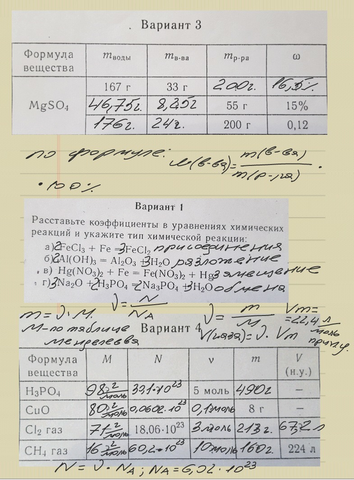 Вариант 3
Формула вещества mводы mв-ва mр-ра ω
MgSO₄ 167 г 33 г 200г. 16,5%
46,75г. 8,25г. 55 г 15%
176г. 24г. 200 г 0,12
по формуле: w(в-ва)= m(в-ва)/m(р-ра)
·100%
Вариант 1
Расставьте коэффициенты в уравнениях химических
реакций и укажите тип химической реакции:
а) 2FeCl₃ + Fe = 3FeCl₂ присоединения
б) 2Al(OH)₃ = Al₂O₃ + 3H₂O разложение
в) Hg(NO₃)₂ + Fe = Fe(NO₃)₂ + Hg замещение
г) 3Na₂O + 2H₃PO₄ = 2Na₃PO₄ + 3H₂O обмена
m = ν·M. ν = N/NA ν = m/M Vm= =22,4 л/моль
M-по таблице V(газа)=ν·Vm при н.у.
менделеева Вариант 4
Формула вещества M N ν m V (н.у.)
H₃PO₄ 98 г/моль 30,1·10²³ 5 моль 490г –
CuO 80 г/моль 0,602·10²³ 0,1моль 8 г –
Cl₂ газ 71 г/моль 18,06·10²³ 3 моль 213г. 67,2 л
CH₄ газ 16 г/моль 60,2·10²³ 10моль 160г 224 л
N = ν·NA; NA=6,02·10²³